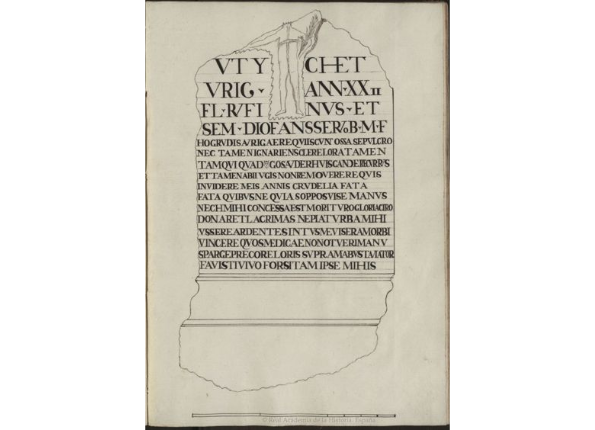 VTY CHET
VRIG · ANN·XXII
FL·RVFI NVS·ET
SEM·DIOFANSSERVOB·M·F
HOCRVDISAVRIGAEREQVIISCVNT OSSASEPVLCRO
NEC TAMENIGNARIENSCLERELORATAMEN
TAMQVI QVAD
ETTAMENABIIVGISNONREMOVEREREQVIS
INVIDERE MEIS ANNIS CRVDELIA FATA
FATA QVIBVSNEQVIASOPPOSVISE MANVS
NECHMIHI CONCESSAESTMORITVROGLORIACIRO
DONARETLACRIMAS NEPIATVRBAMIHI
VSSEREARDENTESINTVSMEVISERAMORBI
VINCERE QVOSMEDICAENONOTVERIMANV
SPARGEPRECORFLORIS SVPRAMABVSTAVIATOR
FAVISTIVIVO FORSITAMIPSE MIHIS
© Real Academia de la Historia. España